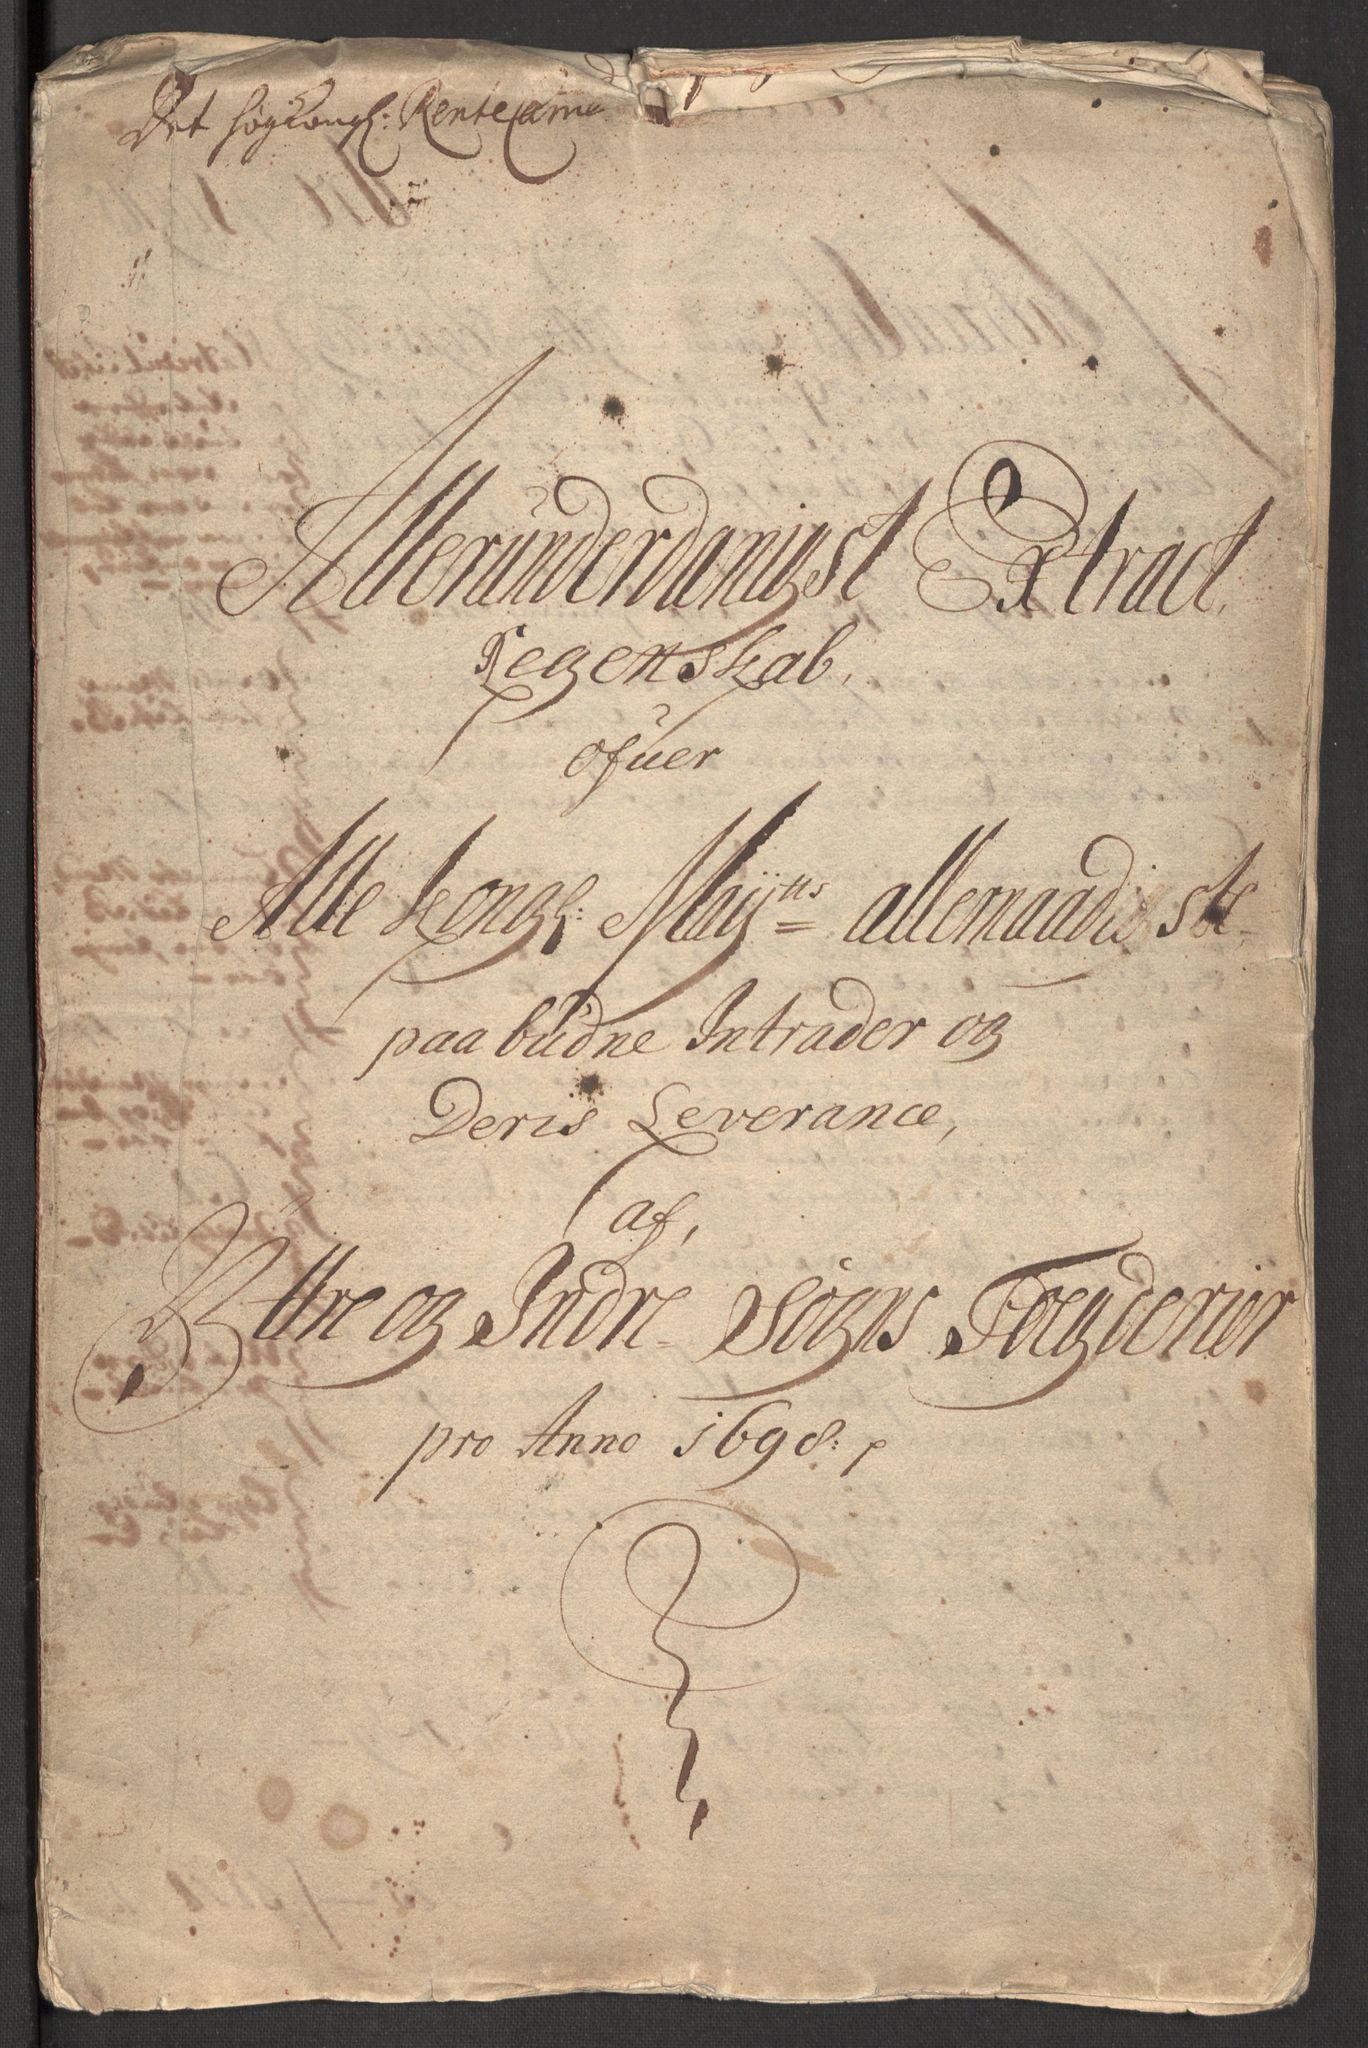 Det høyKongl: RenteCame
Allerúnderdanigst Extract
Regenskab,
ofuer
Alle Kongl: Maÿtts allernaadigste
paabúdne Intrader og
Deris Leverance,
af,
Yttre og Indre Sogns Fogderier
pro Anno 1698: